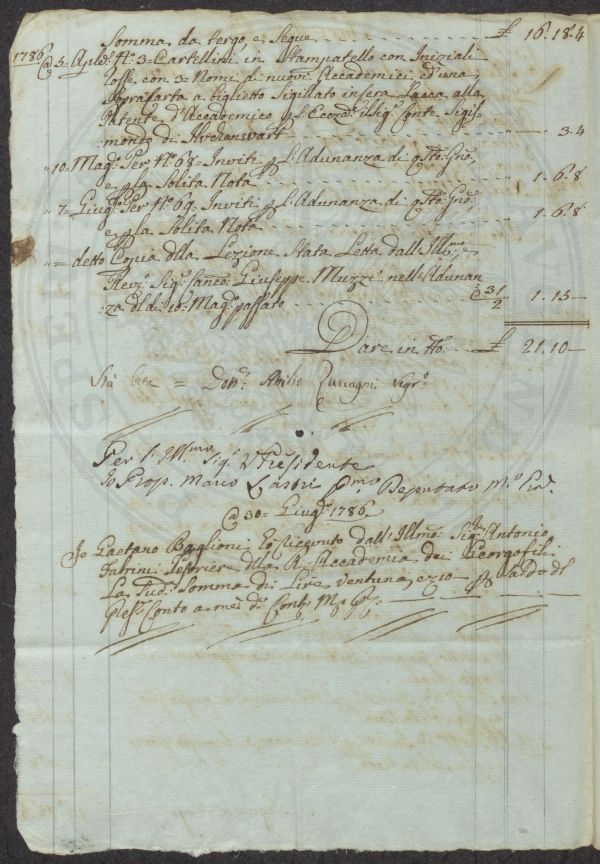 Somma da tergo, e segue £ 16.18.4
1786
@ 5. Aple. N.º 3. Cartellini in Stampatello con Iniziali
con 3. Nomi di nuovi Accademici, ed una
Sopracarta a biglietto Sigillato in Cera Lacca alla
Patente d'Accademico p. S. Ecc.za il Sig.r Conte Sigis-
mondo di " 3.4
" 10. Mag.º Per N.º 68. Inviti p. l'Adunanza di q.sto Gno,
e p. la Solita Nota " 1.6.8
" 7. Giug.º Per N.º 69. Inviti p. l'Adunanza di q.sto Gno,
e p. la Solita Nota 1.6.8
" = detto Copia dlla Lezione Stata Letta dall'Ill.mo, e
Rev.º Sig.r Canco. Giuseppe Muzzi nell'Adunan-
za dl dì 10. Mag.º passato @ 3 1/2 1.15 —
Dare in tto. £ 21.10 —
Stà bene = Dott.r Attilio Zuccagni Segr.º
Per l'Ill.mo Sig.r V. Presidente
Io Prop. Marco Lastri P.mo Deputato
@ 30. Giug.º 1786
Io Gaetano Baglioni Ho ricevuto dall'Illmo. Sig.r Antonio
Fabrini Tesoriere dlla R. Accademia dei Georgofili
La Sud.a Somma di Lire ventuna, e 10 — p. Saldo dl
Pres.e Conto a me dº Cont. Mº Pº.